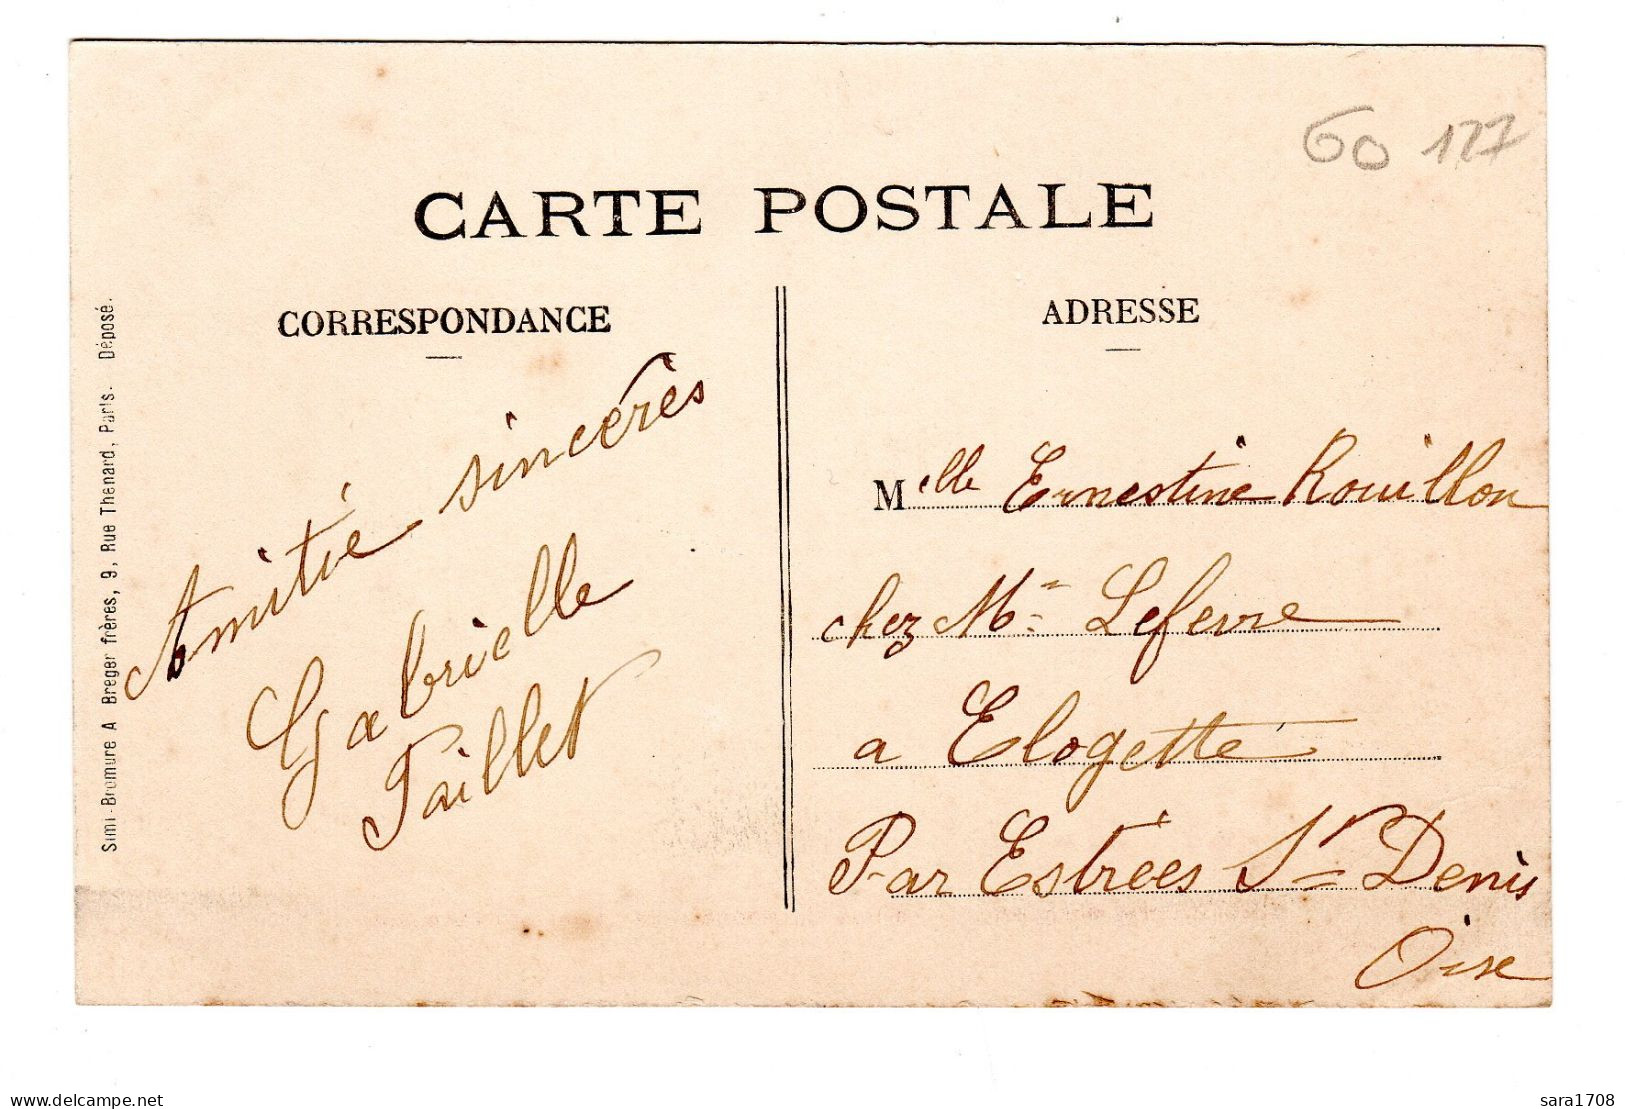 60 127
CARTE POSTALE
CORRESPONDANCE
ADRESSE
Simi-Bromure A Breger frères, 9, Rue Thenard, Paris. Déposé.
Amitié sincères
Gabrielle
Paillet
Melle Ernestine Rouillon
chez Mr Lefevre
a Elogette
Par Estrées St Denis
Oise
delcampe.net
sara1708